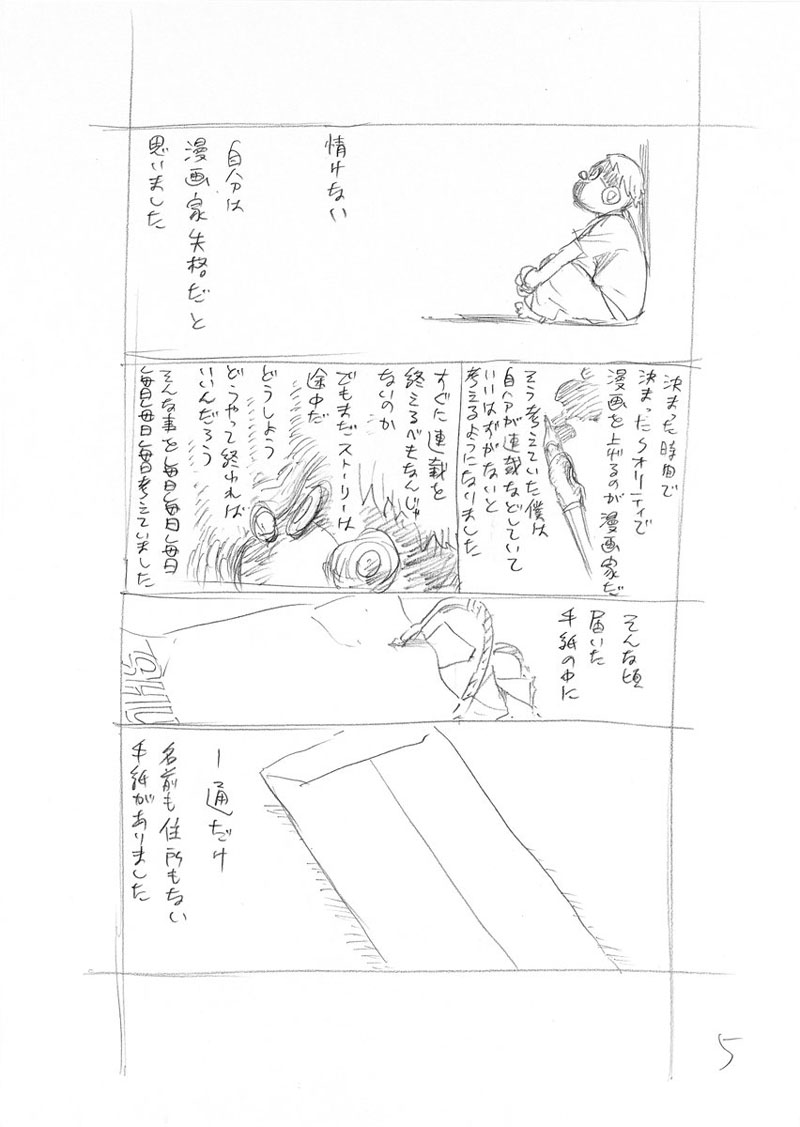 情けない
自分は
漫画家失格だと
思いました
決まった時間で
決まったクオリティで
漫画を上げるのが漫画家だ
そう考えていた僕は
自分が連載などしていて
いいはずがないと
考えるようになりました
すぐに連載を
終えるべきなんじゃ
ないのか
でもまだストーリーは
途中だ
どうしよう
どうやって終われば
いいんだろう
そんな事を毎日毎日毎日
毎日毎日毎日考えていました
そんな頃
届いた
手紙の中に
一通だけ
名前も住所もない
手紙がありました
5